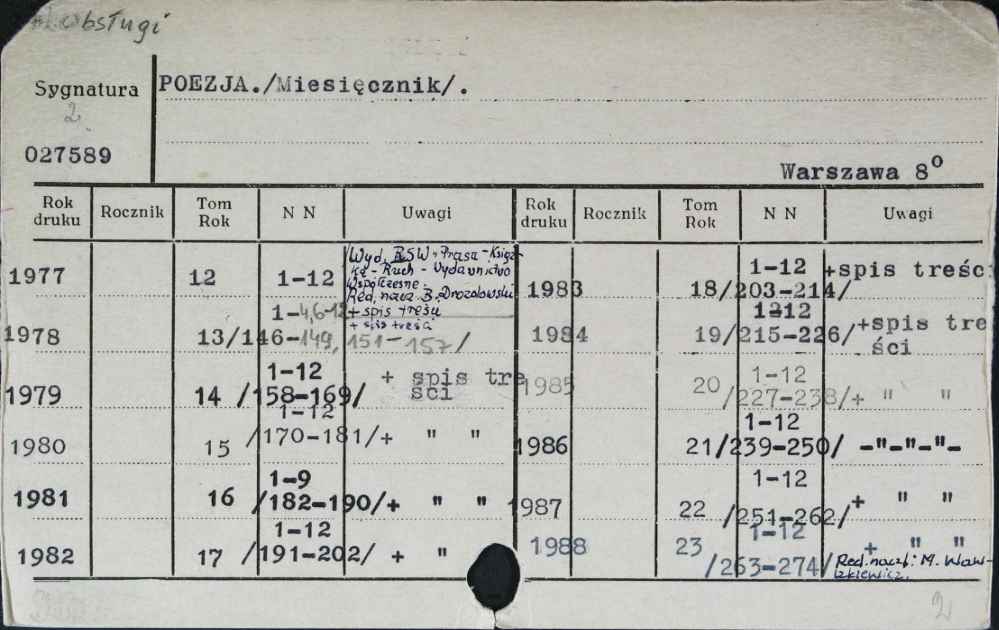 obsługi
Sygnatura
2
027589
POEZJA./Miesięcznik/.
Warszawa 8⁰
Rok druku Rocznik Tom Rok N N Uwagi Rok druku Rocznik Tom Rok N N Uwagi
1977 12 1-12
Wyd. RSW "Prasa-Książ-
ka-Ruch-Wydawnictwo
Współczesne.
Red. nacz. B. Drozdowski
+ spis treści
1978 13/146-149, 151-157/
1-4,6-12
+ spis treści
1979 14 1-12 /158-169/ + spis tre
ści
1980 15 1-12 /170-181/+ " "
1981 16 1-9 /182-190/+ " "
1982 17 1-12 /191-202/ + "
1983 18 1-12 /203-214/ +spis treści
1984 19 1-12 /215-226/ +spis tre
ści
1985 20 1-12 /227-238/+ " "
1986 21 1-12 /239-250/ -"-"-"-
1987 22 1-12 /251-262/ + " "
1988 23 1-12 /263-274/ + " "
Red. nacz.: M. Waw-
rzkiewicz.
2